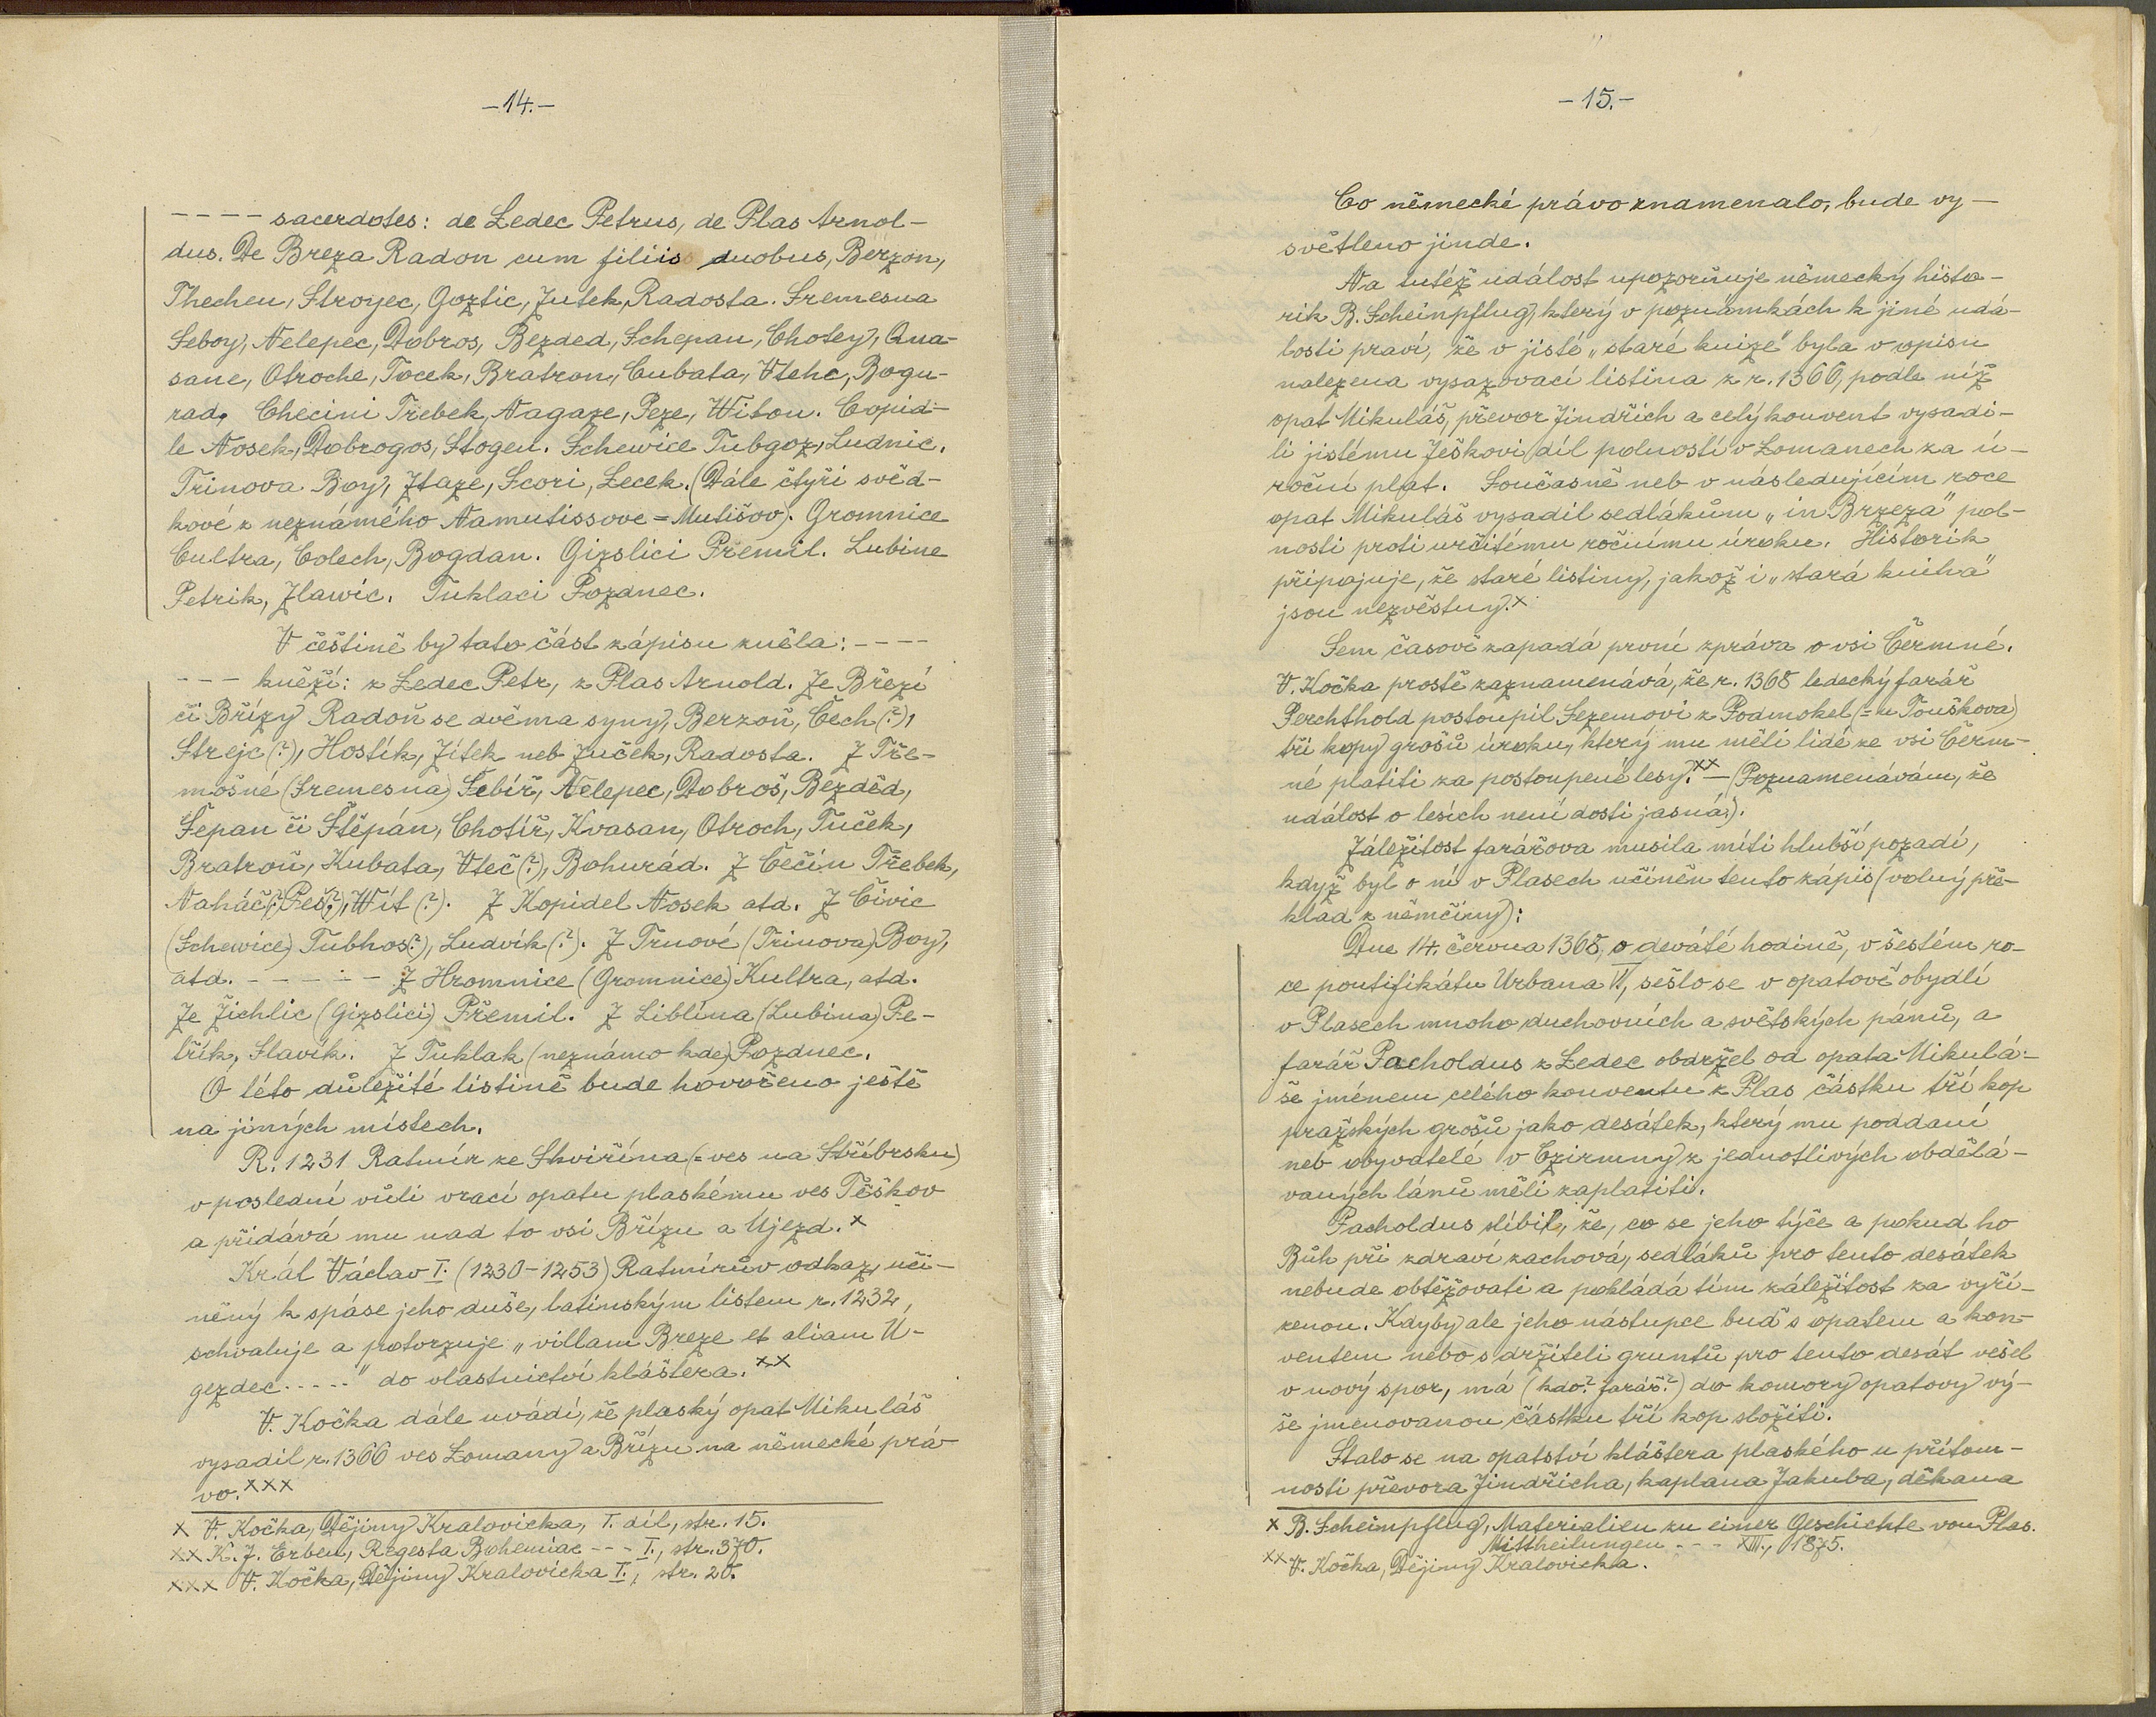 -14.-
---- sacerdotes: de Ledec Petrus, de Plas Arnol-
dus. De Breza Radon cum filiis duobus, Berzon,
Thechen, Stroyec, Goztic, Jutek, Radosta. Sremesna
Seboy, Nelepec, Dobros, Bezded, Schepan, Chotey, Qua-
sane, Otroche, Tocek, Bratron, Cubata, Vtehc, Bogu-
rad, Checini Trebek, Nagaze, Peze, Witon. Copid-
le Nosek, Dobrogos, Stogen. Schewice Tubgoz, Ludnic.
Trinova Boy, Ztaze, Scori, Lecek. (Dále čtyři svěd-
kové z neznámého Namutissove = Mutišov). Gromnice
Cultra, Colech, Bogdan. Gizslici Premil. Lubine
Petrik, Zlawic. Tuklaci Pozdnec.
V češtině by tato část zápisu zněla: ----
--- kněží: z Ledec Petr, z Plas Arnold. Ze Březí
či Břízy Radoň se dvěma syny, Berzoň, Čech (?),
Strejc (?), Hostík, Jítek neb Juček, Radosta. Z Tře-
mošné (Sremesna) Šebíř, Nelepec, Dobroš, Bezděd,
Šepan či Štěpán, Chotíř, Kvasan, Otroch, Tuček,
Bratroň, Kubata, Vteč (?), Bohurád. Z Čečín Třebek,
Naháč(?), Pes(?), Wít (?). Z Kopidel Nosek atd. Z Čivic
(Schewice) Tubhos(?), Ludvík (?). Z Trnové (Trinova) Boy,
atd. ------ Z Hromnice (Gromnice) Kultra, atd.
Ze Žichlic (Gizslici) Přemil. Z Liblína (Lubina) Pe-
třík, Slavík. Z Tuklak (neznámo kde) Pozdnec.
O této důležité listině bude hovořeno ještě
na jiných místech.
R. 1231 Ratmír ze Skviřína (= ves na Stříbrsku)
v poslední vůli vrací opatu plaskému ves Těškov
a přidává mu nad to vsi Břízu a Újezd. x
Král Václav I. (1230-1253) Ratmírův odkaz, uči-
něný k spáse jeho duše, latinským listem r. 1232,
schvaluje a potvrzuje „villam Breze et aliam U-
gezdec....." do vlastnictví kláštera. xx
V. Kočka dále uvádí, že plaský opat Mikuláš
vysadil r. 1366 ves Lomany a Břízu na německé prá-
vo. xxx
x V. Kočka, Dějiny Kralovicka, I. díl, str. 15.
xx K. J. Erben, Regesta Bohemiae --- I., str. 370.
xxx V. Kočka, Dějiny Kralovicka I., str. 20.
-15.-
Co německé právo znamenalo, bude vy-
světleno jinde.
Na tutéž událost upozorňuje německý histo-
rik B. Scheinpflug, který v poznámkách k jiné udá-
losti praví, že v jisté „staré knize" byla v opisu
nalezena vysazovací listina z r. 1366, podle níž
opat Mikuláš, převor Jindřich a celý konvent vysadi-
li jistému Ješkovi díl polností v Lomanech za ú-
roční plat. Současně neb v následujícím roce
opat Mikuláš vysadil sedlákům „in Brzeza" pol-
nosti proti určitému ročnímu úroku. Historik
připojuje, že staré listiny, jakož i „stará kniha"
jsou nezvěstny. x
Sem časově zapadá první zpráva o vsi Čermné.
V. Kočka prostě zaznamenává, že r. 1368 ledecký farář
Perchthold postoupil Sezemovi z Podmokel (= u Touškova)
tři kopy grošů úroku, který mu měli lidé ze vsi Čerm-
né platiti za postoupené lesy. xx - (Poznamenávám, že
událost o lesích není dosti jasná).
Záležitost farářova musila míti hlubší pozadí,
když byl o ní v Plasech učiněn tento zápis (volný pře-
klad z němčiny):
Dne 14. června 1368, o deváté hodině, v šestém ro-
ce pontifikátu Urbana V., sešlo se v opatově obydlí
v Plasech mnoho duchovních a světských pánů, a
farář Pacholdus z Ledec obdržel od opata Mikulá-
še jménem celého konventu z Plas částku tří kop
pražských grošů jako desátek, který mu poddaní
neb obyvatelé v Czirmny z jednotlivých obdělá-
vaných lánů měli zaplatiti.
Pacholdus slíbil, že, co se jeho týče a pokud ho
Bůh při zdraví zachová, sedláků pro tento desátek
nebude obtěžovati a pokládá tím záležitost za vyří-
zenou. Kdyby ale jeho nástupce buď s opatem a kon-
ventem nebo s držiteli gruntů pro tento desát vešel
v nový spor, má (kdo? farář?) do komory opatovy vý-
še jmenovanou částku tří kop složiti.
Stalo se na opatství kláštera plaského u přítom-
nosti převora Jindřicha, kaplana Jakuba, děkana
x B. Scheinpflug, Materialien zu einer Geschichte von Plas.
Mittheilungen --- XIII., 1875.
xx V. Kočka, Dějiny Kralovicka.